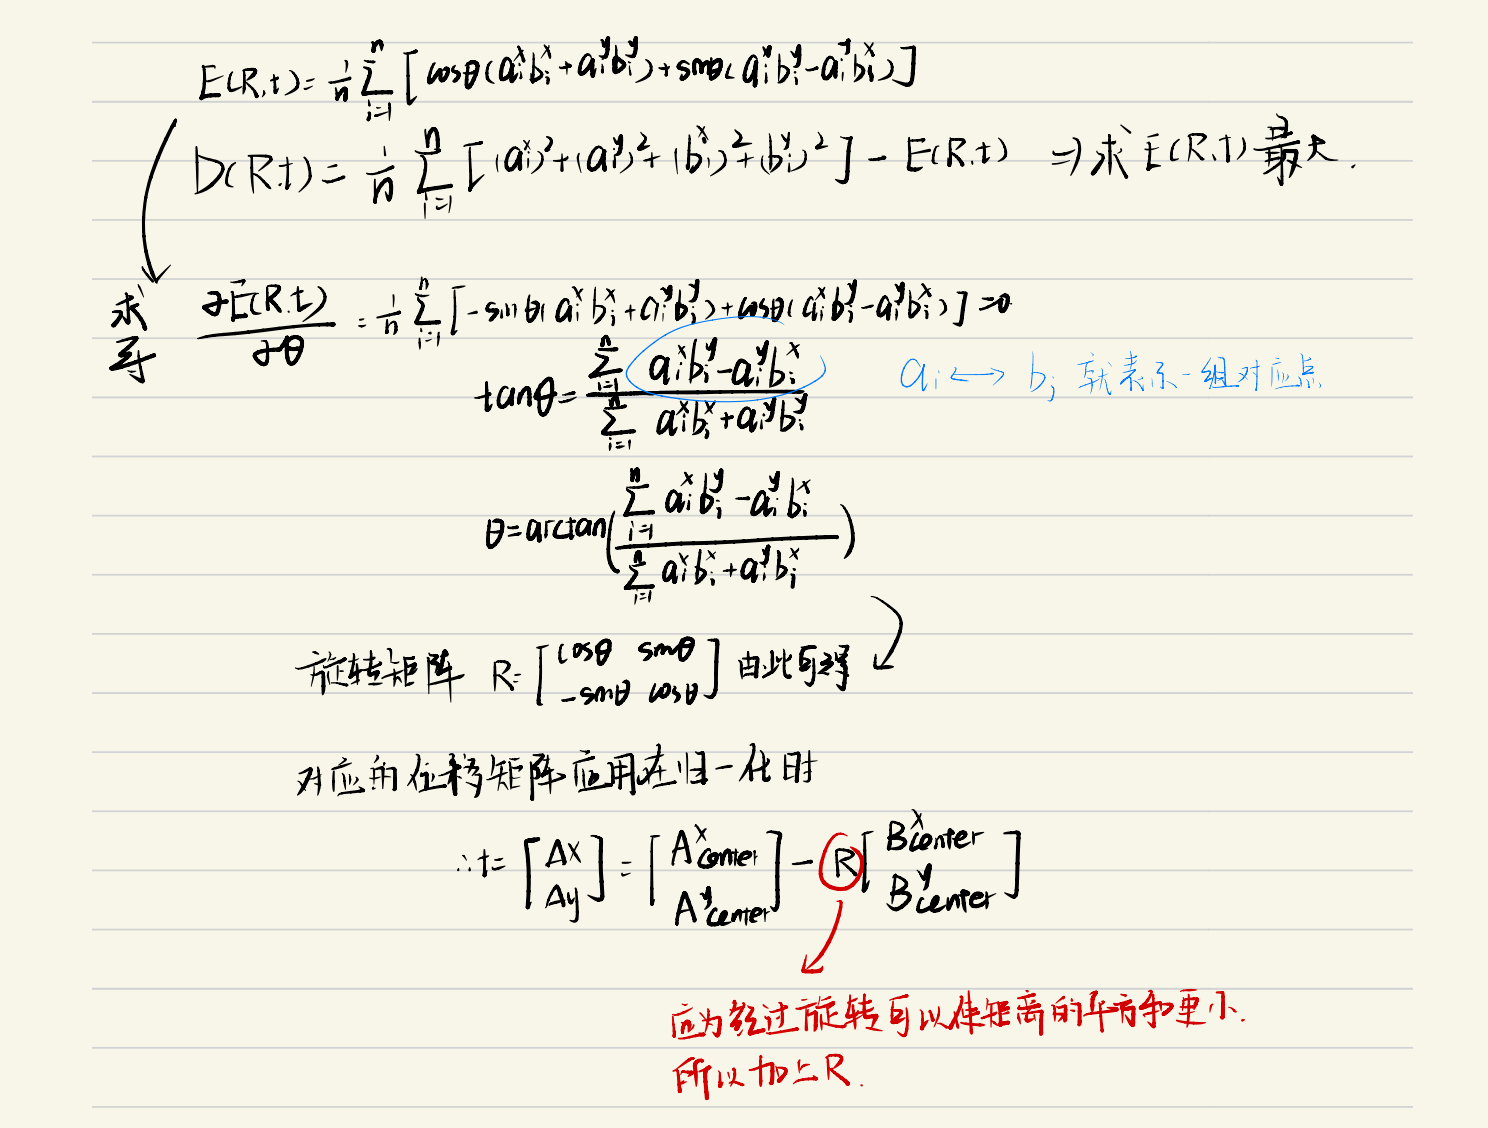 E(R,t)=\frac{1}{n}\sum_{i=1}^{n}[cosθ(a_i^x b_i^x+a_i^y b_i^y)+sinθ(a_i^x b_i^y-a_i^y b_i^x)]
D(R,t)=\frac{1}{n}\sum_{i=1}^{n}[(a_i^x)^2+(a_i^y)^2+(b_i^x)^2+(b_i^y)^2]-E(R,t) ⇒求E(R,t)最大.
求导 \frac{∂E(R,t)}{∂θ}=\frac{1}{n}\sum_{i=1}^{n}[-sinθ(a_i^x b_i^x+a_i^y b_i^y)+cosθ(a_i^x b_i^y-a_i^y b_i^x)]=0
tanθ=\frac{\sum_{i=1}^{n} a_i^x b_i^y-a_i^y b_i^x}{\sum_{i=1}^{n} a_i^x b_i^x+a_i^y b_i^y}
a_i ↔ b_i 就表示一组对应点
θ=arctan(\frac{\sum_{i=1}^{n} a_i^x b_i^y-a_i^y b_i^x}{\sum_{i=1}^{n} a_i^x b_i^x+a_i^y b_i^x})
旋转矩阵 R=[cosθ sinθ
-sinθ cosθ] 由此可得
对应的位移矩阵应用在归一化时
∴t=[Δx Δy]=[A^x_{center} A^y_{center}]-R[B^x_{center} B^y_{center}]
应为经过旋转可以使距离的平方和更小.
所以加上R.